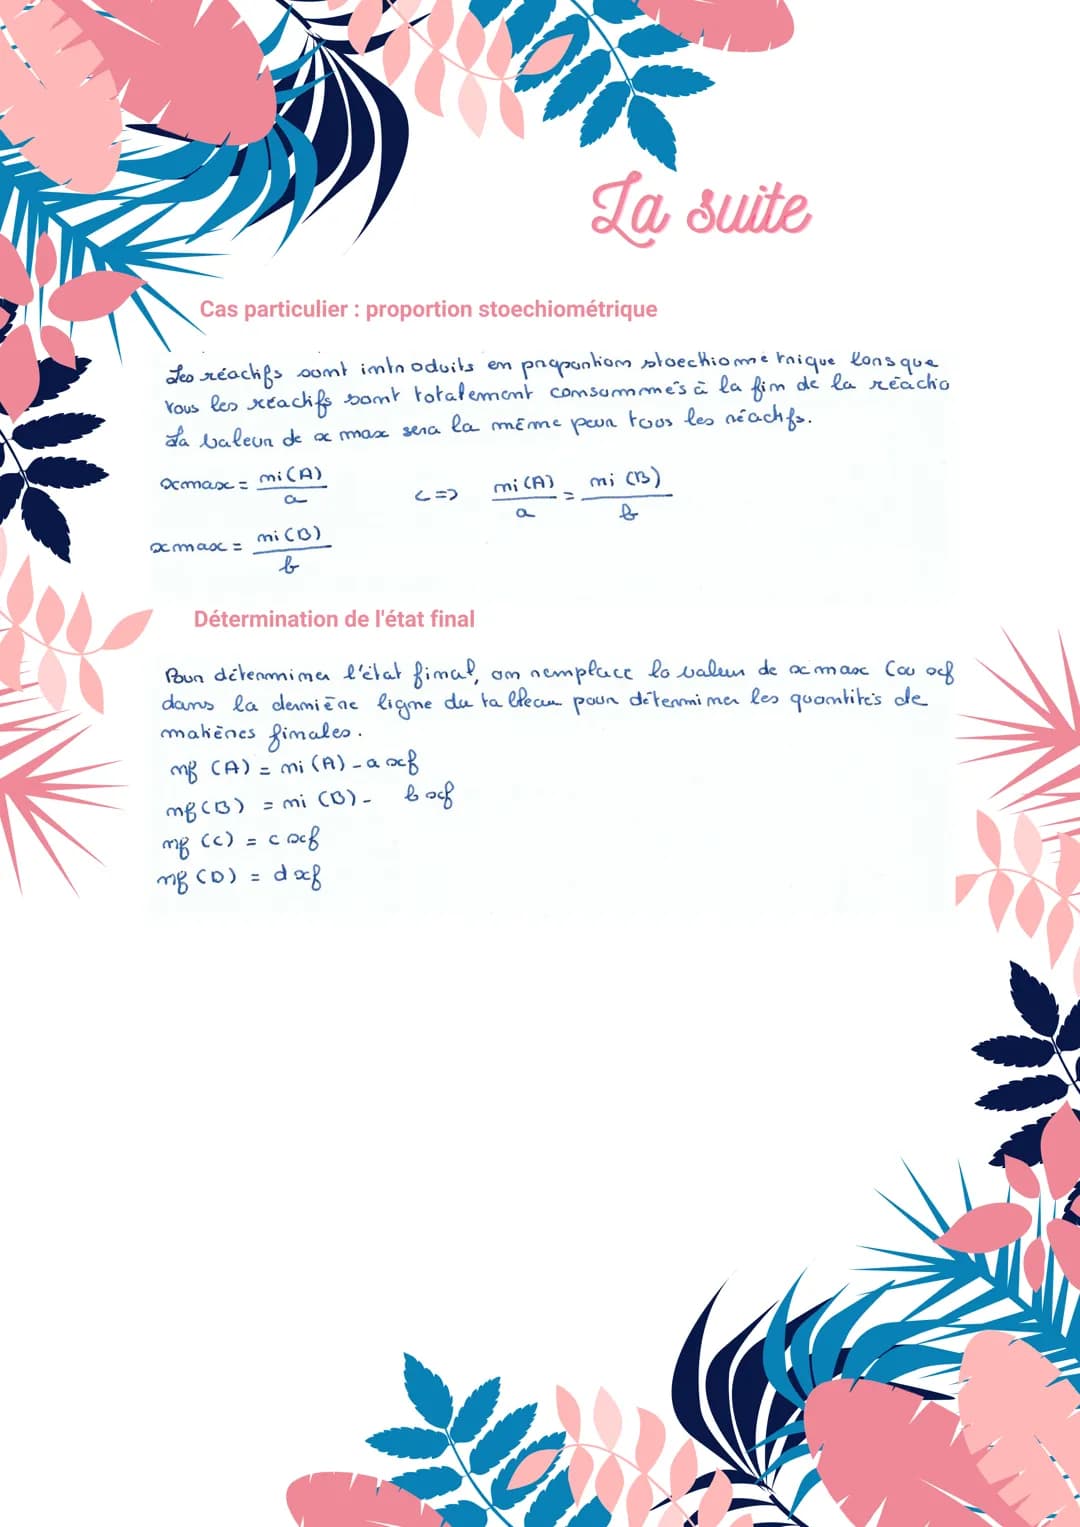 La suite
Cas particulier : proportion stoechiométrique
Les réactifs sont introduits en proportion stoechiométrique lorsque
tous les réactifs sont totalement consommés à la fin de la réactio
La valeur de x max sera la même pour tous les réactifs.
xmax = ni(A)/a <=> ni(A)/a = ni(B)/b
xmax = ni(B)/b
Détermination de l'état final
Pour déterminer l'état final, on remplace la valeur de xmax (ou xf
dans la dernière ligne du tableau pour déterminer les quantités de
matières finales.
nf (A) = ni (A) - a xf
nf (B) = ni (B) - b xf
nf (C) = c xf
nf (D) = d xf